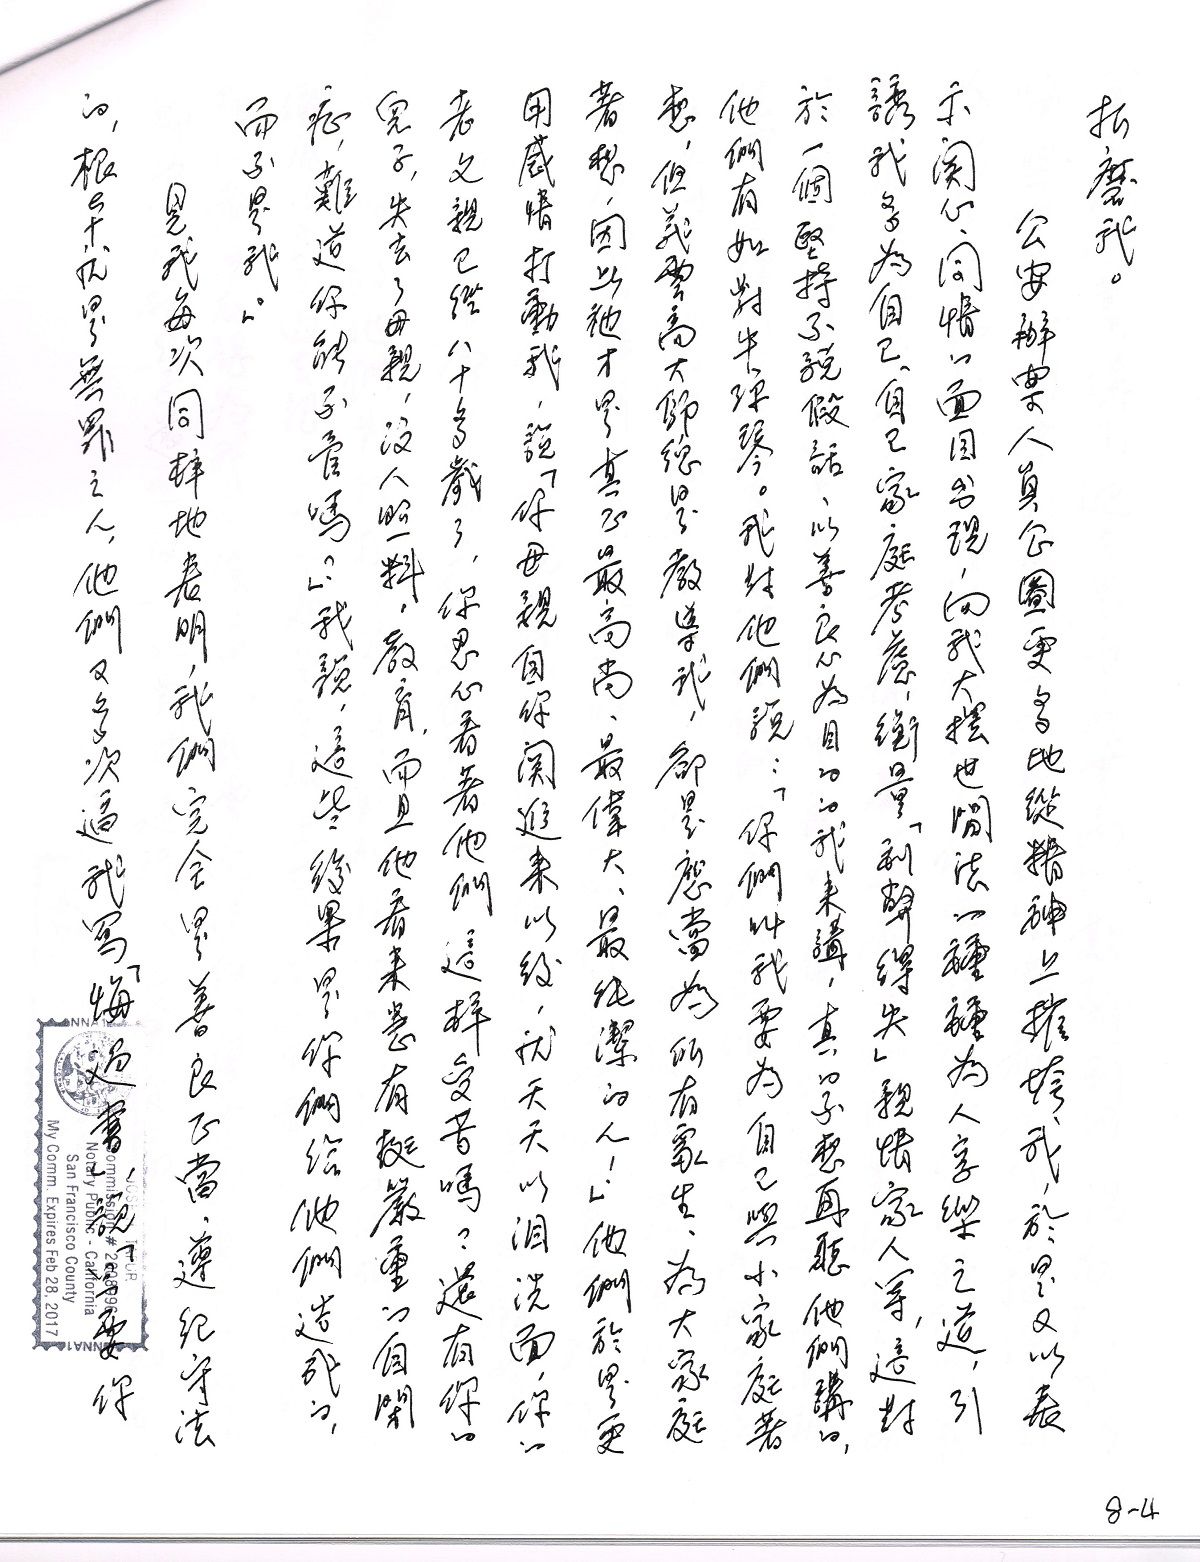 折磨我。
公安辦案人員企圖更多地從精神上摧垮我，於是又以表
示関心、同情的面目出現，向我大擺世間法的種種為人享樂之道，引
誘我多為自己、自己家庭考慮，衡量「利弊得失」親情家人等，這對
於一個堅持不說假話、以善良心為目的的我來講，真的不想再聽他們講的，
他們有如對牛彈琴。我對他們說：「你們叫我要為自己與小家庭著
想，但義雲高大師總是教導我，卻是應當為所有眾生、為大家庭
著想，因此祂才是真正最高尚、最偉大、最純潔的人！」他們於是更
用感情打動我，說「你母親自你関進來以後，就天天以泪洗面，你的
老父親已經八十多歲了，你忍心看著他們這樣受苦嗎？還有你的
兒子，失去了母親，沒人照料，教育，而且他看來患有挺嚴重的自閉
症，難道你能不管嗎？」我說，這些後果是你們給他們造成的，
而不是我。」
見我每次同樣地表明，我們完全是善良正當、遵紀守法
的，根本就是無罪之人，他們又多次逼我寫「悔過書」，說「要你
Commission #
Notary Public - California
San Francisco County
My Comm. Expires Feb 28, 2017
8-4